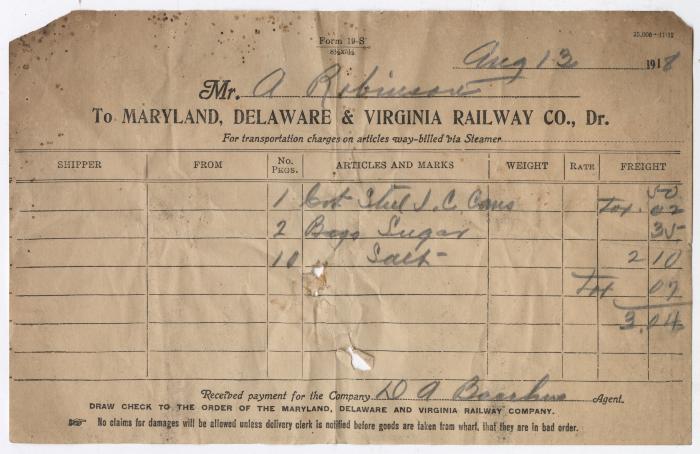 Form 19-S
8½x5¼
25,000-11-12
Aug 13 1918
Mr. A Robinson
To MARYLAND, DELAWARE & VIRGINIA RAILWAY CO., Dr.
For transportation charges on articles way-billed via Steamer
SHIPPER FROM No. PKGS. ARTICLES AND MARKS WEIGHT RATE FREIGHT
50
1 Steel I. C. Cans Tax. 02
2 Bags Sugar 35
10 " Salt 2 10
Tax 07
3.04
Received payment for the Company D A Agent.
DRAW CHECK TO THE ORDER OF THE MARYLAND, DELAWARE AND VIRGINIA RAILWAY COMPANY.
☞ No claims for damages will be allowed unless delivery clerk is notified before goods are taken from wharf, that they are in bad order.